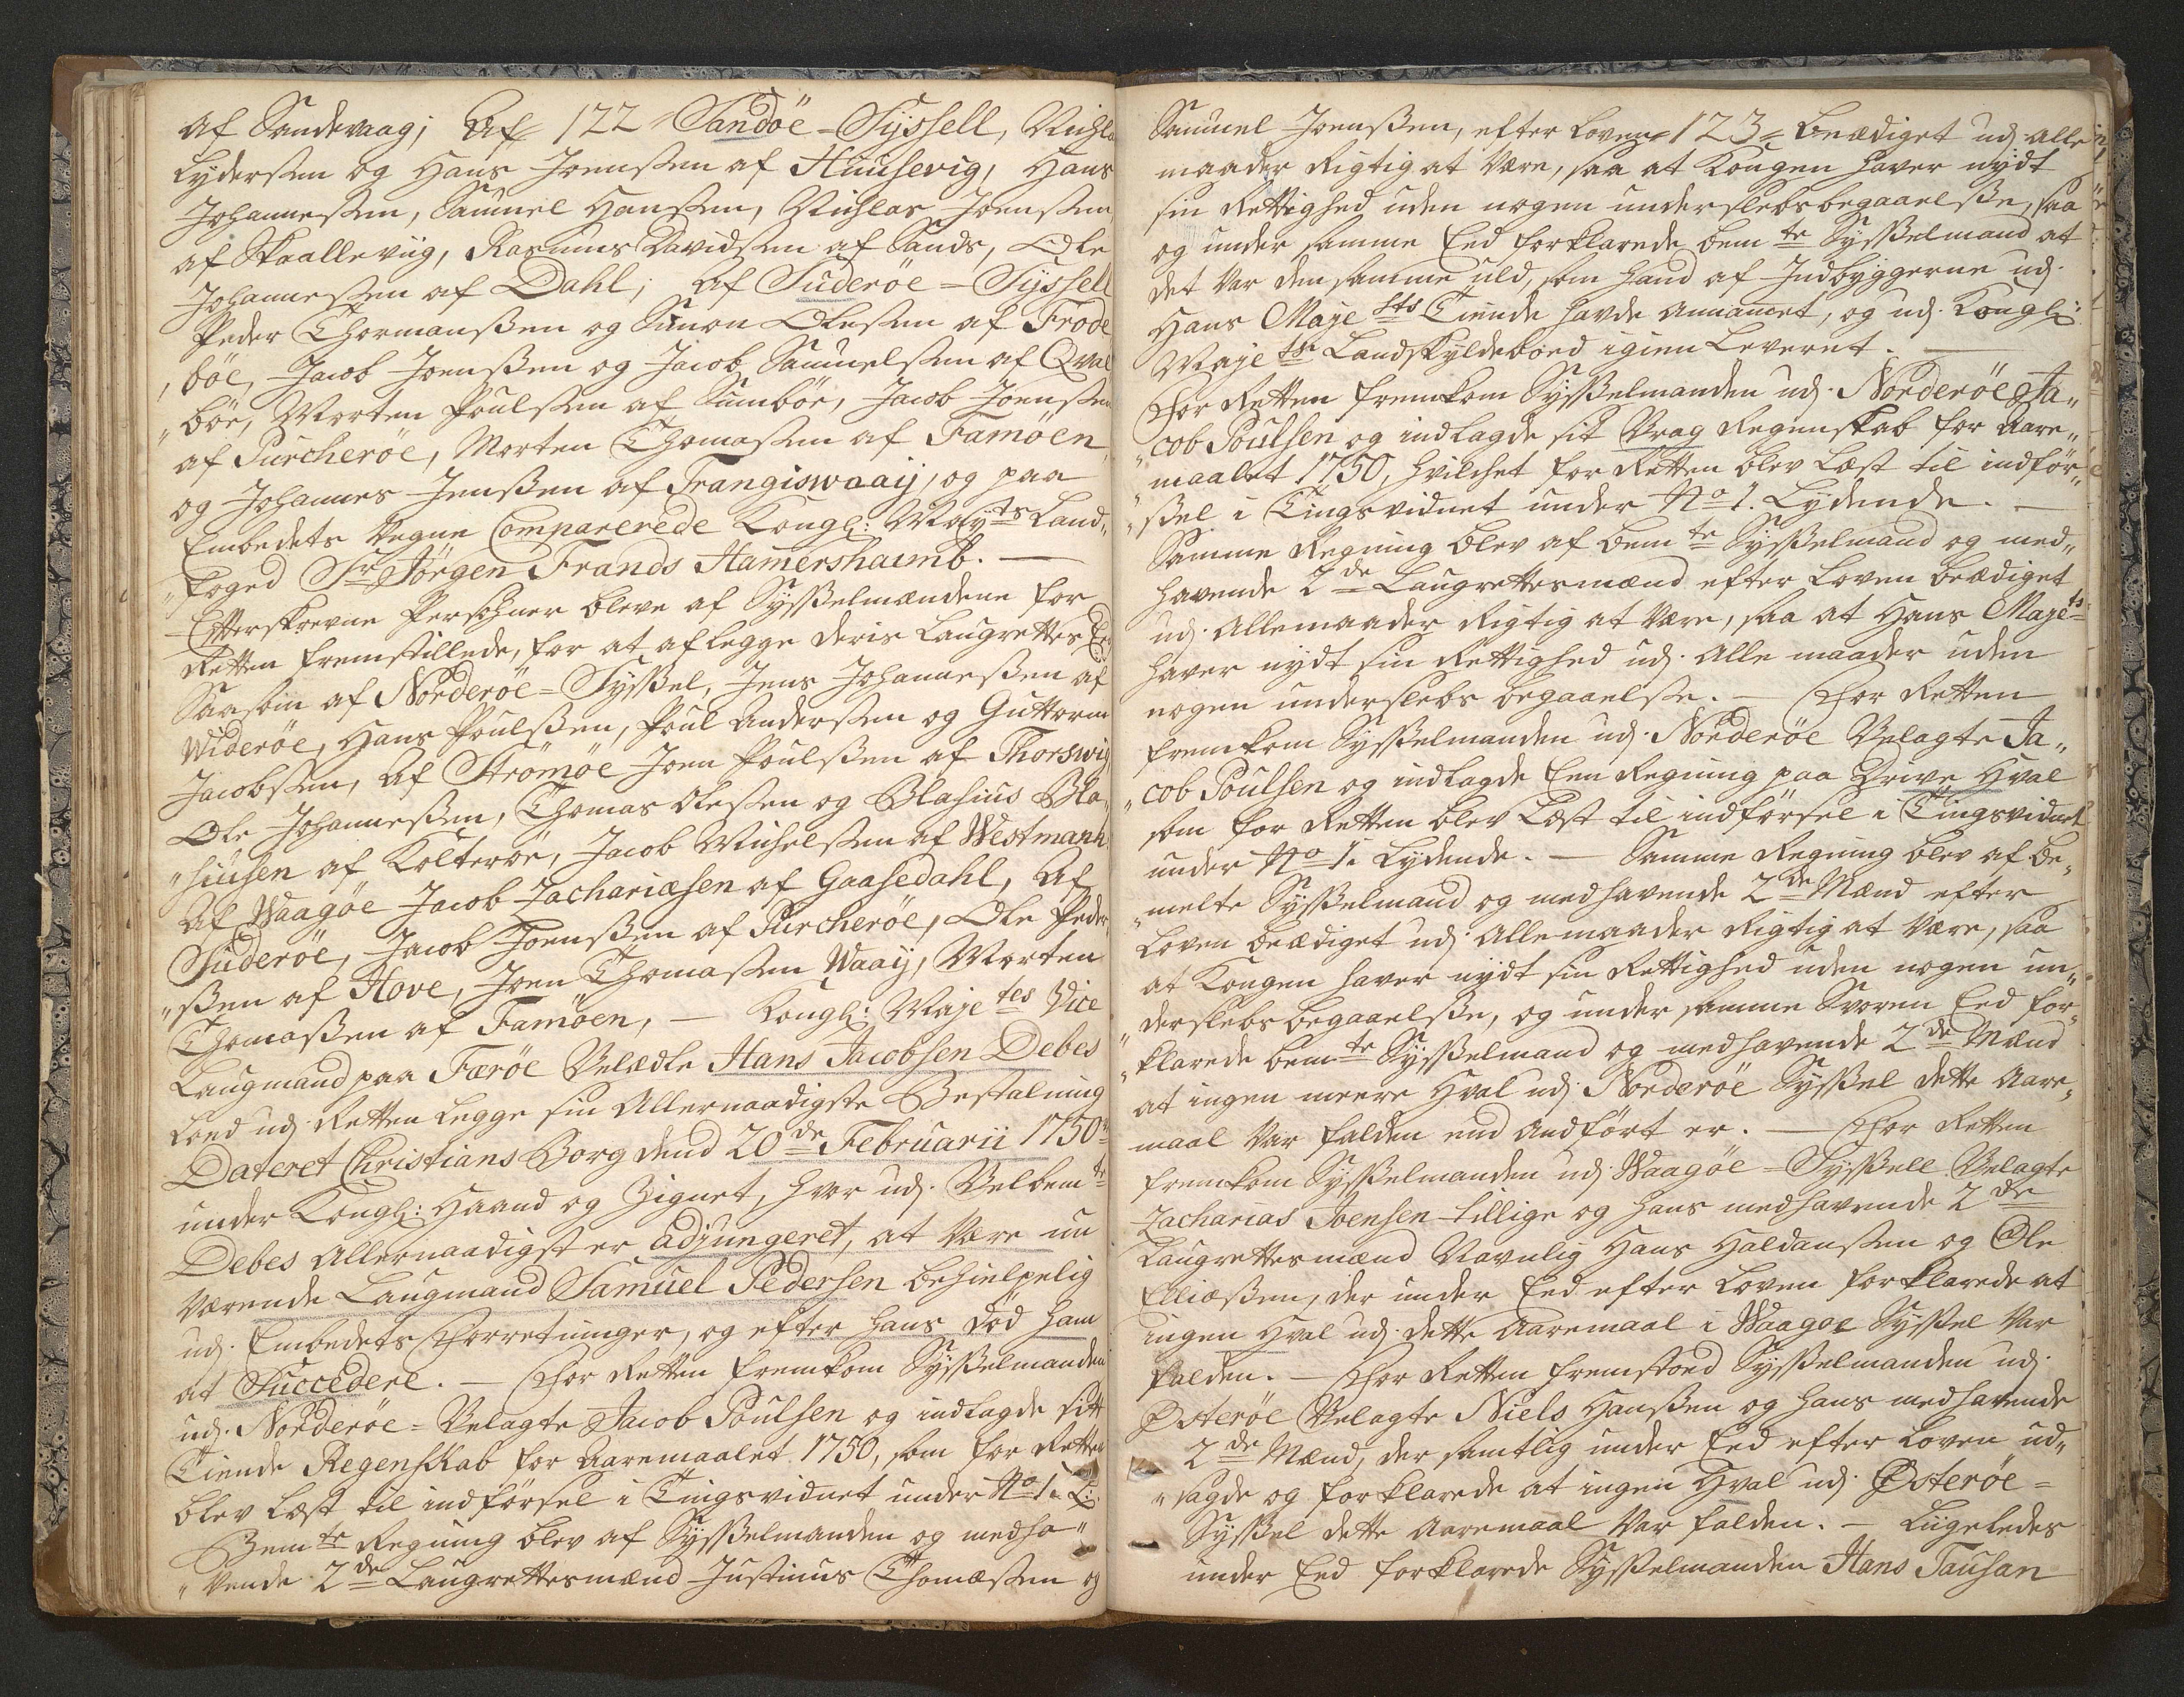 af Sandevaag; Af 122 Sandöe-Sÿssell, Nichla
Lydersen og Hans Joensen af Huusevig, Hans
Johannessen, Samuel Hansen, Nichlas Joensen
af Skaallevиig, Rasmus Davidsen af Sands, Ole
Johannessen af Dahl; af Suderöe-Sÿssell
Peder Thormansßen og Simon Olesen af Frode
"böe, Jacob Joenßen og Jacob Samuelsen af Qval
"böe, Morten Poulsen af Sumböe, Jacob Joensen
af Purcheröe, Morten Thomasen af Famöen,
og Johannes Jenßen af Frangiswaaij, og paa
Embedets Vegne Comparerede Kongl: Mayts Land„
"foged Sr Jörgen Frands Hamershaimb. —
Efterskrevne Persohner bleve af Sysßelmændene for
Retten fremstillede, for at aflegge deris Laugrettes Ed
Saasom af Norderöe-Sÿßel, Jens Johanneßen af
Wideröe, Hans Poulßen, Poul Andersen og Guttorm
Jacobsen, Af Strömöe Joen Poulßen af Thorswig
Ole Johanneßen, Thomas Olesen og Blasius Bla„
"siusen af Kolteröe, Jacob Michelsen af Westmanh
Af Waagöe Jacob Zachariæsen af Gaasedahl, Af
Suderöe, Jacob Joenßen af Purcheröe, Ole Peder„
"ßen af Hove, Joen Thomasen Waaij, Morten
Thomaßen af Famöen, — Kongl: Majetes Vice
Laugmand paa Færöe Velædle Hans Jacobsen Debes
Loed udj Retten legge sin Allernaadigste Bestalning
Dateret Christians Borg dend 20de Februarii 1750
under Kongl: Haand og Zignet, hvor udj Velbemte
Debes Allernaadigst er adjungeret, at være nu
værende Laugmand Samuel Pedersen behielpelig
udj Embedets Forretninger, og efter hans död ham
at Succedere. — For Retten fremkom Sysßelmanden
udj Norderöe-Velagte Jacob Poulsen og indlagde sitt
Tiende Regenskab for Aaremaalet 1750, som for Retten
blev læst til indförsel i Tingsvidnet under No 1. L:
Bemte Regning blev af Sysßelmanden og medha„
"vende 2de Laugrettesmænd Justinus Thomæsen og
Samuel Joenßen, efter Loven 123 beædiget udj alle
maader Rigtig at være, saa at Kongen haver nÿdt
sin Rettighed uden nogen underslebs begaaelße, saa
og under samme Eed forklarede bemte Sysßelmand at
det var den samme uld, som hand af Indbyggerne udj
Hans Majests Tiende havde Annamet, og udj Kongl:
Majets Landskyldeboed igien Leveret. —
For Retten fremkom Sysßelmanden udj Norderöe Ja„
"cob Poulsen og indlagde sit Vrag Regenskab for Aare„
"maalet 1750, hvilchet for Retten blev Læst til indför„
"ßel i Tingsvidnet under No 1. Lydende. —
Samme Regning blev af bemte Sysßelmand og med„
havende 2de Laugrettesmænd efter Loven beædiget
udj Allemaader Rigtig at være, saa at Hans Majets
haver nÿdt sin Rettighed udj Alle maader uden
nogen underslebs begaaelse. — For Retten
fremkom Sysßelmanden udj Norderöe Velagte Ja„
"cob Poulsen og indlagde Een Regning paa Drive Hval
som for Retten blev Læst til indförsel i Tingsvidnet
under No 1. Lydende. — Samme Regning blev af be„
"melte Sysßelmand og medhavende 2de Mænd efter
Loven beædiget udj Allemaader Rigtig at være, saa
at Kongen haver nÿdt sin Rettighed uden nogen un„
"derslebs begaaelße, og under samme Svoren Eed for„
"klarede bemte Sysßelmand og medhavende 2de Mænd
at ingen meere Hval udj Norderöe Sysßel dette Aare„
maal var falden end Anfört er. — For Retten
fremkom Sysßelmanden udj Waagöe-Sysßell Velagte
Zacharias Joensen tillige og hans medhavende 2de
Laugrettesmænd Navnlig Hans Haldansen og Ole
Elliæsßen, der under Eed efter Loven forklarede at
ingen Hval udj dette Aaremaal i Waagoe Sysßel var
falden. — For Retten fremstoed Sysßelmanden udj
Østeröe Velagte Niels Hanßen og hans medhavende
2de Mænd, der samtlig under Eed efter Loven ud„
"sagde og forklarede at ingen Hval udj Østeröe-
Sysßel dette Aaremaal var falden. — Liigeledes
under Eed forklarede Sysßelmanden Hans Tausan